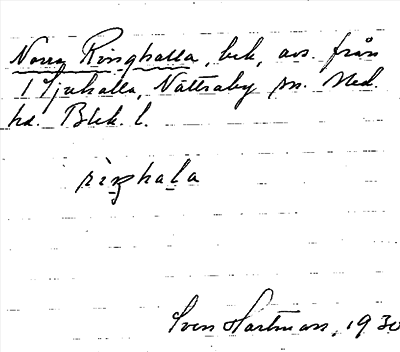 Norra Ringhalla, bek, avs. från
1 Tjuhalla, Nättraby sn. Med.
hd. Blek. l.
rìŋhala
Sven Hartman, 1930